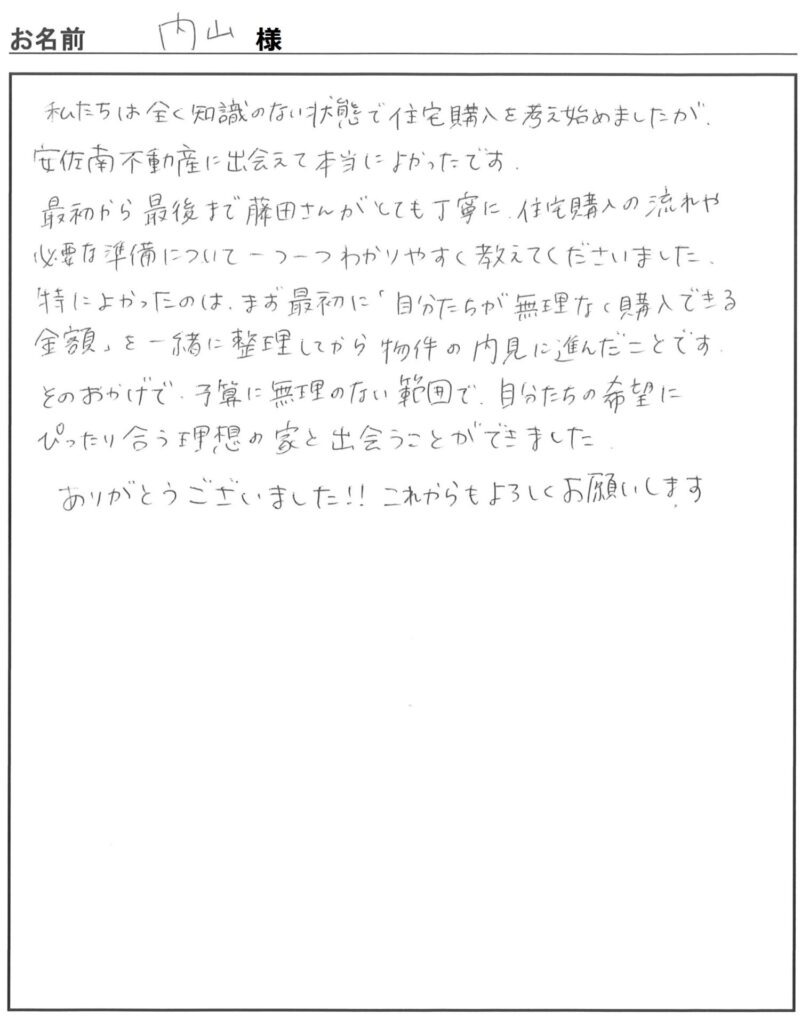 お名前 内山 様
私たちは全く知識のない状態で住宅購入を考え始めましたが、
安佐南不動産に出会えて本当によかったです。
最初から最後まで藤田さんがとても丁寧に、住宅購入の流れや
必要な準備について一つ一つわかりやすく教えてくださいました。
特によかったのは、まず最初に「自分たちが無理なく購入できる
金額」を一緒に整理してから物件の内見に進んだことです。
そのおかげで、予算に無理のない範囲で、自分たちの希望に
ぴったり合う理想の家と出会うことができました。
ありがとうございました!! これからもよろしくお願いします